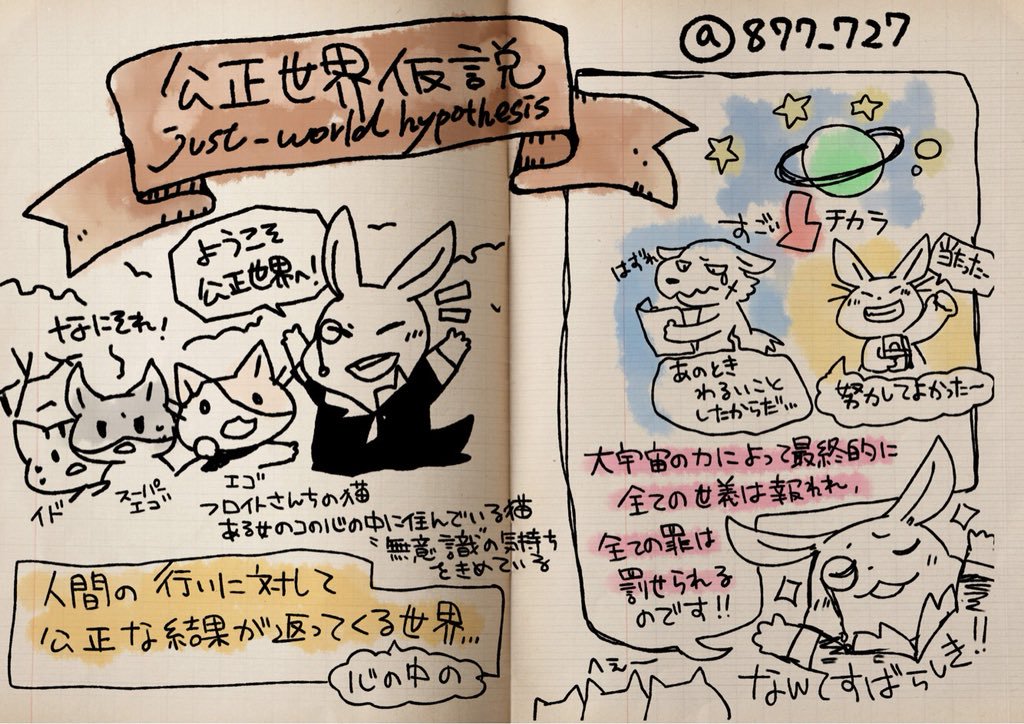 公正世界仮説
just-world hypothesis
@877_727
ようこそ
公正世界へ!
なにそれ!
イド
スーパー
エゴ
エゴ
フロイトさんちの猫
ある女のコの心の中に住んでいる猫
"無意識"の気持ち
をきめている
人間の行いに対して
公正な結果が返ってくる世界...
心の中の
すごい
チカラ
はずれ
当たった~
あのとき
わるいこと
したからだ...
努力してよかった~
大宇宙の力によって最終的に
全ての正義は報われ、
全ての罪は
罰せられる
のです!!
へぇー
なんてすばらしき!!